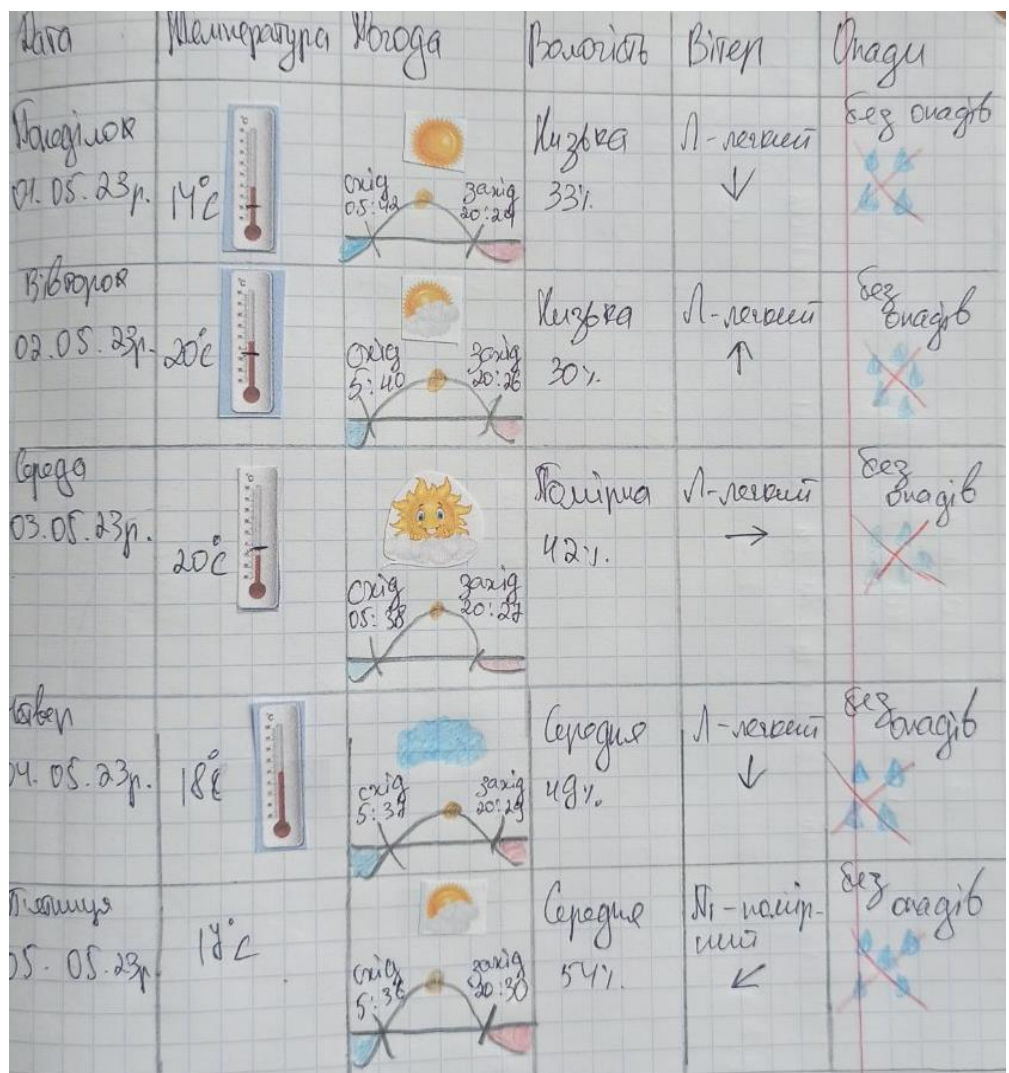 Дата Температура Погода Вологість Вітер Опади
Понеділок
01.05.23р.
14°C
схід
05:42
захід
Низька
33%
Л-легкий
без опадів
Вівторок
02.05.23р.
20°C
схід
5:40
захід
20:26
Низька
30%
Л-легкий
без
опадів
Середа
03.05.23р.
20°C
схід
05:38
захід
20:27
Помірна
42%
Л-легкий
без
опадів
Четвер
04.05.23р.
18°C
схід
5:37
захід
20:29
Середня
49%
Л-легкий
без
опадів
П'ятниця
05.05.23р.
17°C
схід
5:36
захід
20:30
Середня
54%
П-помір-
ний
без
опадів